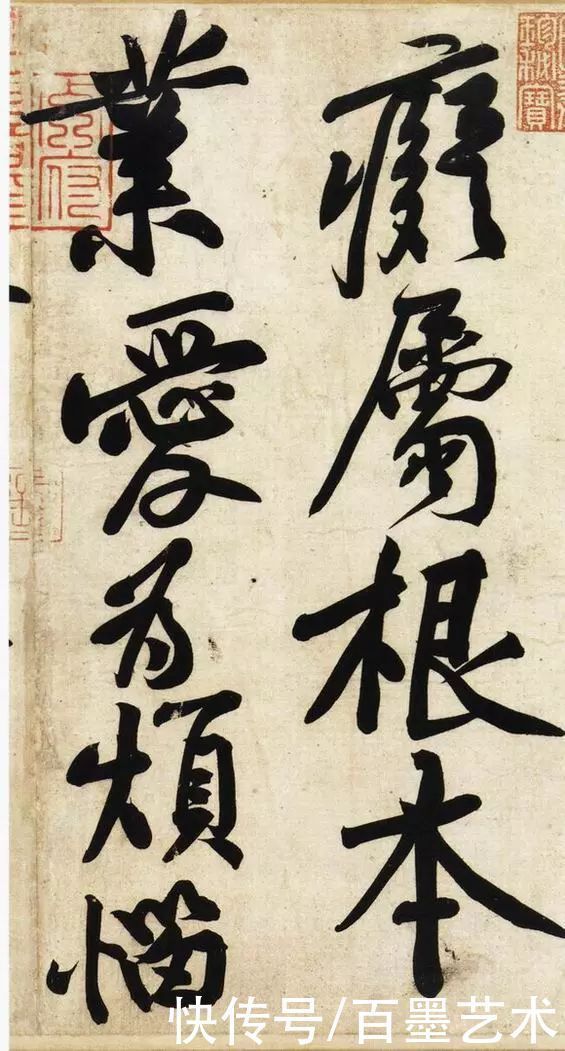 癡屬根本
業愛為煩惱
快传号/百墨艺术